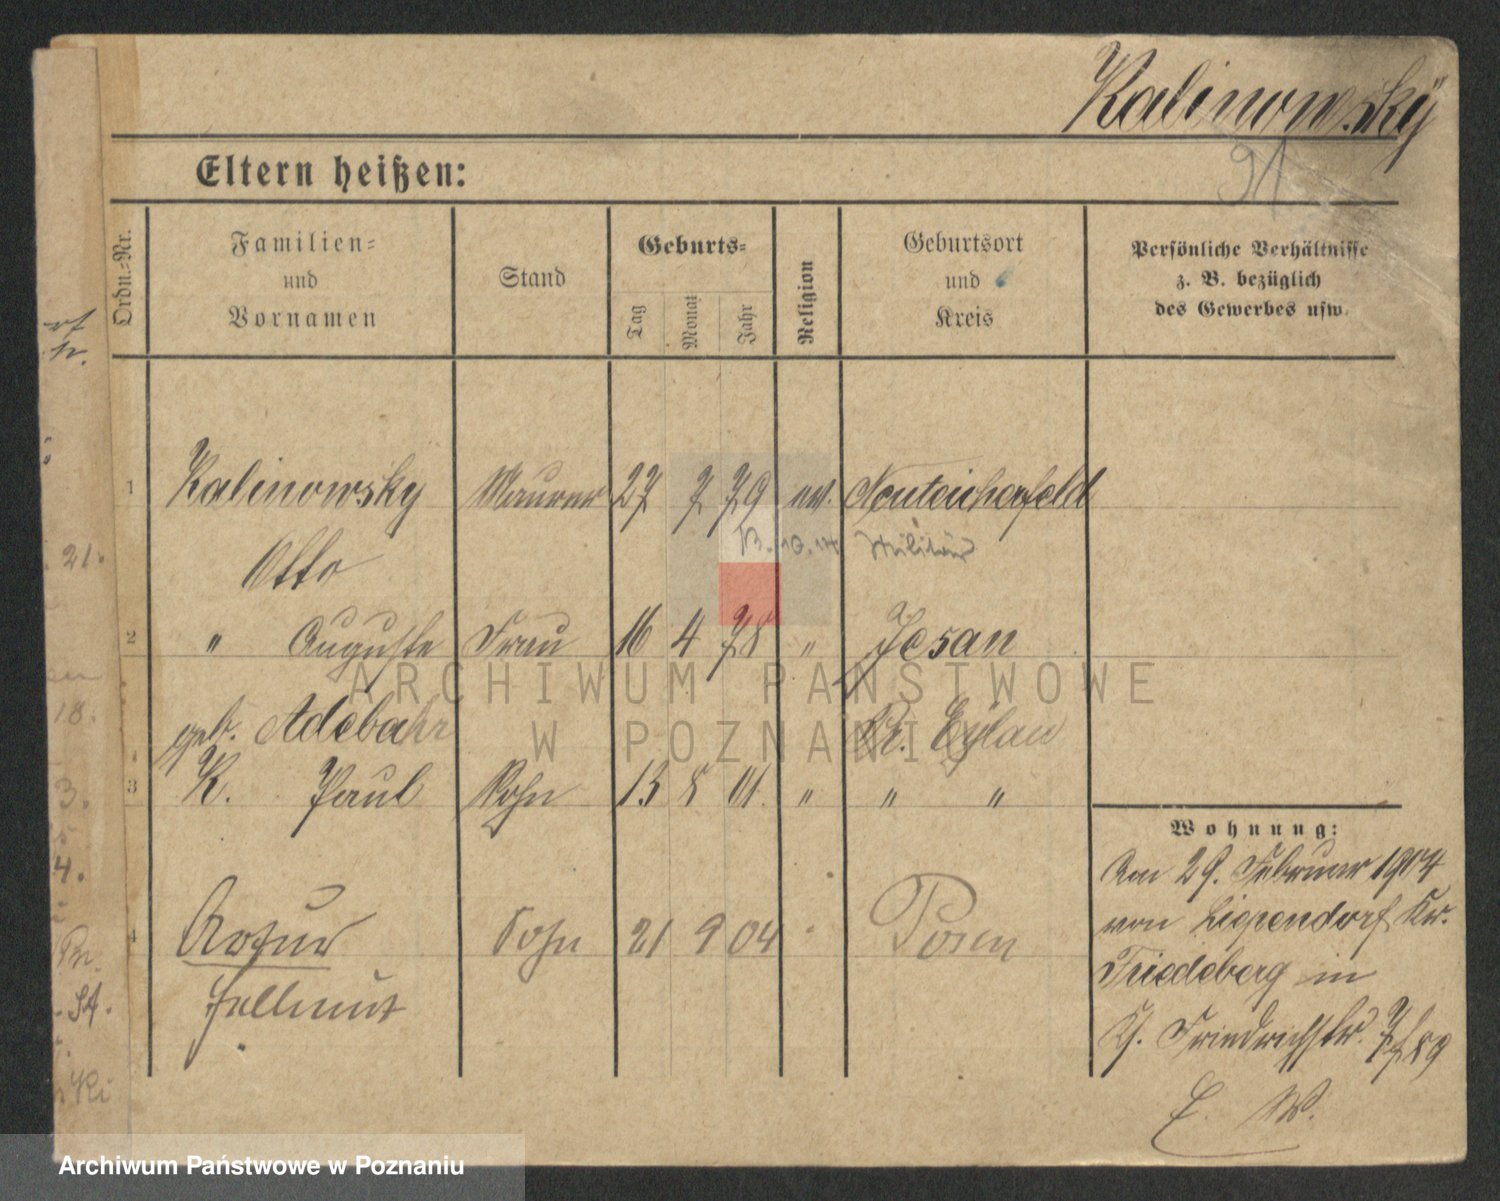 Kalinowsky
91
Eltern heißen:
Ordn.-Nr.
Familien-
und
Vornamen
Stand
Geburts-
Tag
Monat
Jahr
Religion
Geburtsort
und
Kreis
Persönliche Verhältnisse
z. B. bezüglich
des Gewerbes usw.
1 Kalinowsky Maurer 27 7 79 ev. Neuteicherfeld
Militär
Otto
21.
2 " Auguste Frau 16 4 78 " Jesan
geb. Adebahr Pr. Eylau
18.
3 K. Paul Sohn 13 8 01. " " "
3.
Wohnung:
Am 29. Februar 1904
von Liependorf Kr.
Friedeberg in
Friedrichstr.
4.
4 Artur Sohn 21 9 04 Posen
Hellmut
E. W.
ARCHIWUM PAŃSTWOWE
W POZNANIU
Archiwum Państwowe w Poznaniu